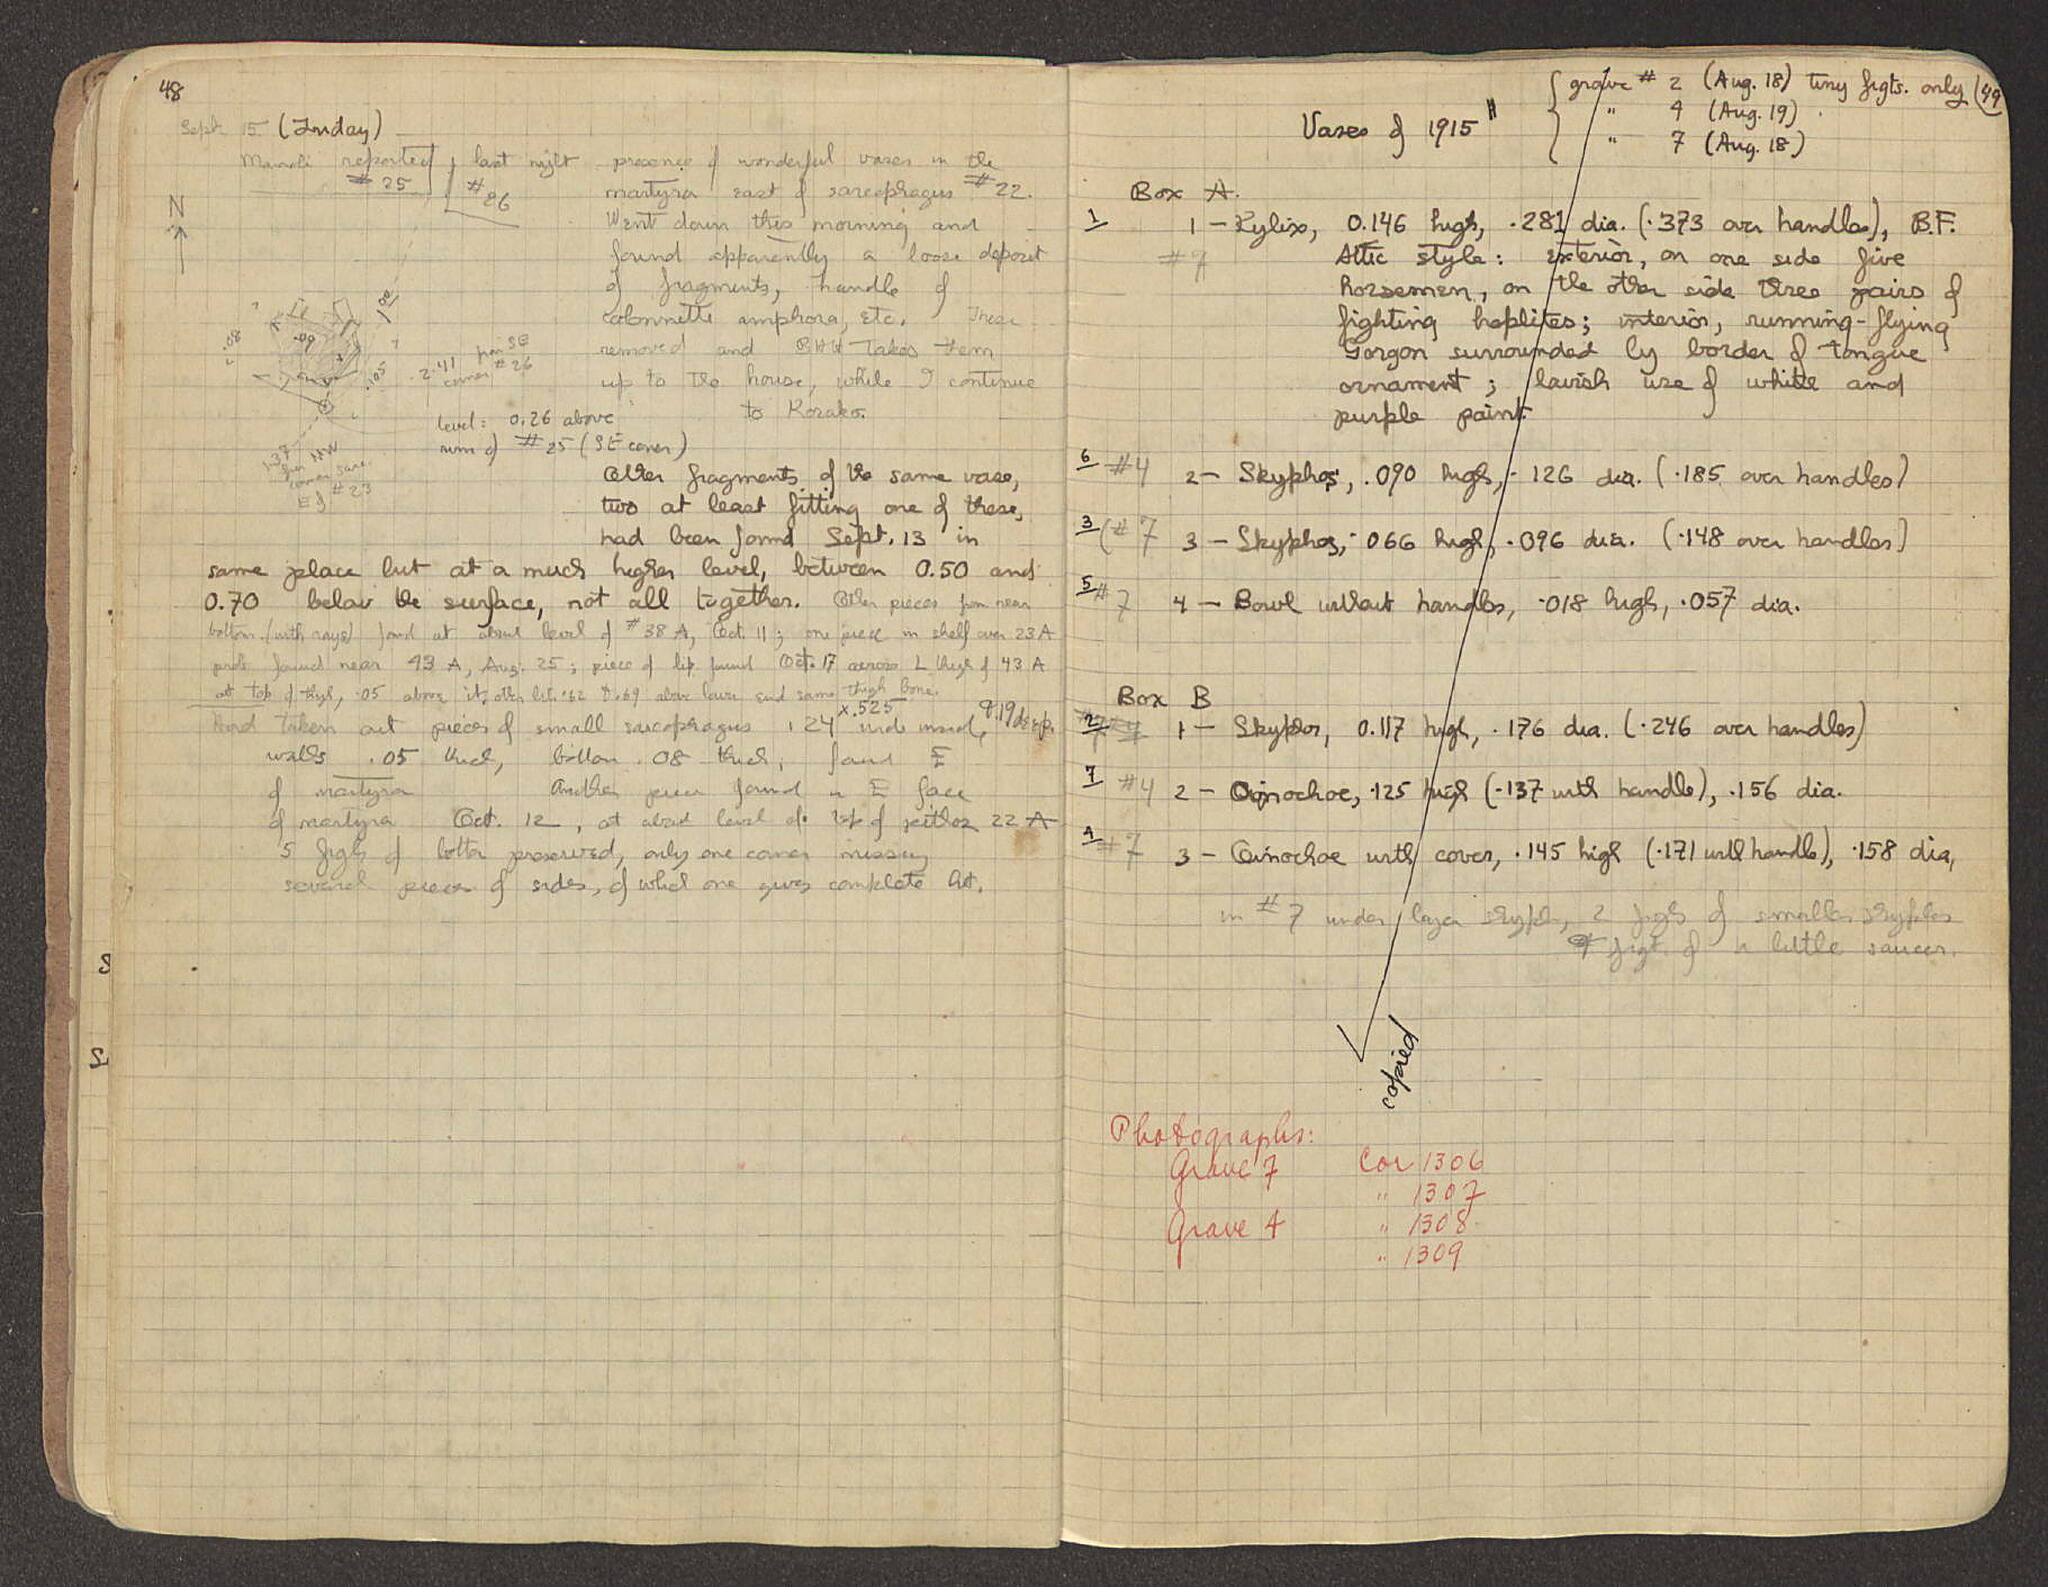 48
Sept. 15 (Friday)
Manoli reported last night presence of wonderful vases in the
#25 #26 martyra east of sarcophagus #22.
N
Went down this morning and
found apparently a loose deposit
of fragments, handle of
colonnette amphora, etc. These
removed and takes them
up to the house, while I continue
to Korako.
.09
1.00
.08
.105
2.41 from SE
corner #26
level: 0.26 above
rim of #25 (SE corner)
1.37
from NW
corner sarc.
E of #23
Other fragments of the same vase,
two at least fitting one of these,
had been found Sept. 13 in
same place but at a much higher level, between 0.50 and
0.70 below the surface, not all together. Other pieces from near
bottom (with rays) found at about level of #38 A, Oct. 11; one piece in shelf over 23 A
found near 43 A, Aug. 25; piece of lip found Oct. 17 across L thigh of 43 A
at top of thigh, .05 above it, other bits .62 & .69 above lower end same thigh bone.
Had taken out pieces of small sarcophagus .24 x .525 wide inside, .19 deep,
walls .05 thick, bottom .08 thick, found E
of martyra Another piece found in E face
of martyra Oct. 12, at about level of top of pithos 22 A
5 frgts of bottom preserved, only one corner missing
several pieces of sides, of which one gives complete ht.
49
Vases of 1915
grave #2 (Aug. 18) tiny frgts. only
" 4 (Aug. 19)
" 7 (Aug. 18)
Box A.
1 1 – Kylix, 0.146 high, .281 dia. (.373 over handles), B.F.
#7 Attic style: exterior, on one side five
horsemen, on the other side three pairs of
fighting hoplites; interior, running-flying
Gorgon surrounded by border of tongue
ornament; lavish use of white and
purple paint.
6 #4 2 – Skyphos, .090 high, .126 dia. (.185 over handles)
3 (#7 3 – Skyphos, .066 high, .096 dia. (.148 over handles)
5 #7 4 – Bowl without handles, .018 high, .057 dia.
Box B
2 1 – Skyphos, 0.117 high, .176 dia. (.246 over handles)
7 #4 2 – Oinochoe, .125 high (.137 with handle), .156 dia.
4 #7 3 – Oinochoe with cover, .145 high (.171 with handle), .158 dia,
in #7 under larger skyphos, 2 frgts of smaller skyphos
& frgt. of a little saucer.
copied
Photographs:
Grave 7 Cor 1306
" 1307
Grave 4 " 1308
" 1309